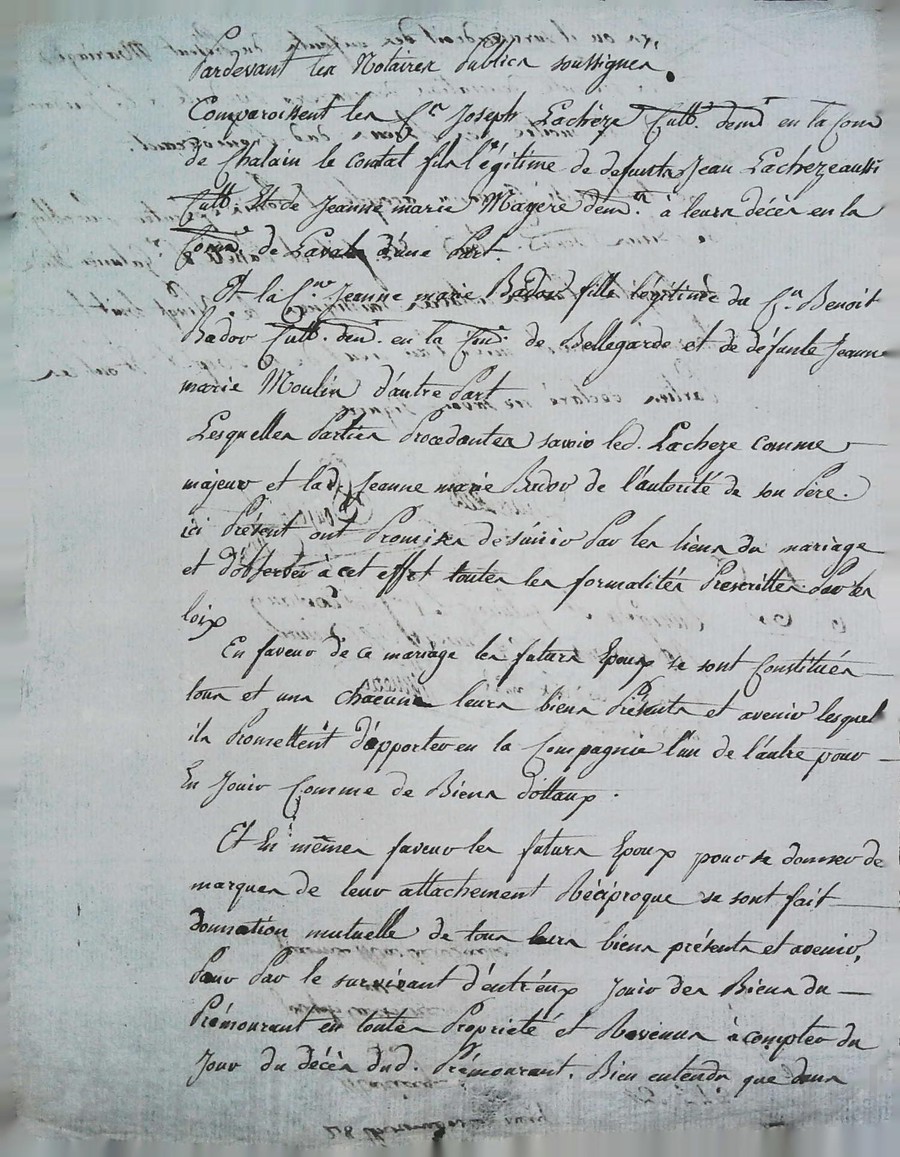 Pardevant les Notaires Publics soussignés.
Comparoissent les C.en Joseph Lachèze Cult.r dem.t en la Com.
de Chalain le comtal fils légitime de defunts Jean Lacheze aussi
Cult.r Et de Jeanne marie Magere dem.ts à leurs décès en la
Com.e de Lavals d'une Part.
Et la C.ne Jeanne marie Badou fille legitime du C.en Benoit
Badou Cult.r dem.t en la Com.e de Bellegarde et de défunte Jeanne
marie Moulin d'autre Part
Lesquelles Parties Procedantes savoir led. Lacheze comme
majeur et lad. Jeanne marie Badou de l'autorité de son Père.
ici Présent ont Promises de s'unir Par les liens du mariage
et d'observer à cet effet toutes les formalités Prescrittes Par les
loix
En faveur de ce mariage les futurs Epoux se sont Constitués
tous et uns chacuns leurs biens Présents et avenir lesquel
ils Promettent d'apporter en la Compagnie l'un de l'autre pour
En Jouir Comme de Biens dottaux.
Et En mêmes faveur les futurs Epoux pour se donner de
marques de leur attachement Réciproque se sont fait
donnation mutuelle de tous leurs biens présents et avenir,
Pour Par le survivant d'entréux Jouir des Biens du
Prémourant en toutes Propriété et Revenus à compter du
Jour du décès dud. Prémourant. Bien entendu que dans